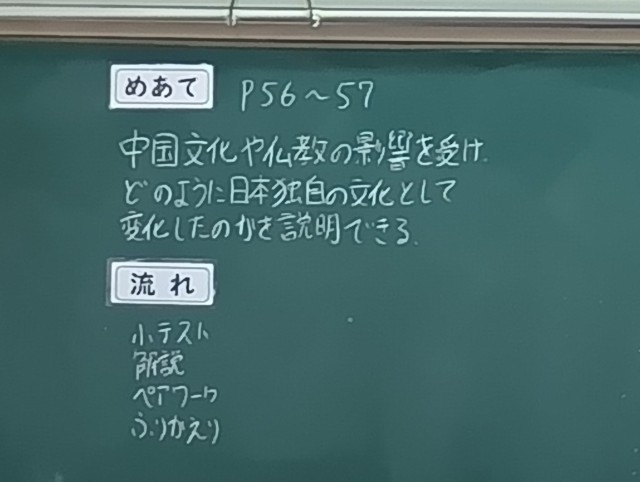 めあて P56〜57
中国文化や仏教の影響を受け、
どのように日本独自の文化として
変化したのかを説明できる。
流れ
小テスト
解説
ペアワーク
ふりかえり